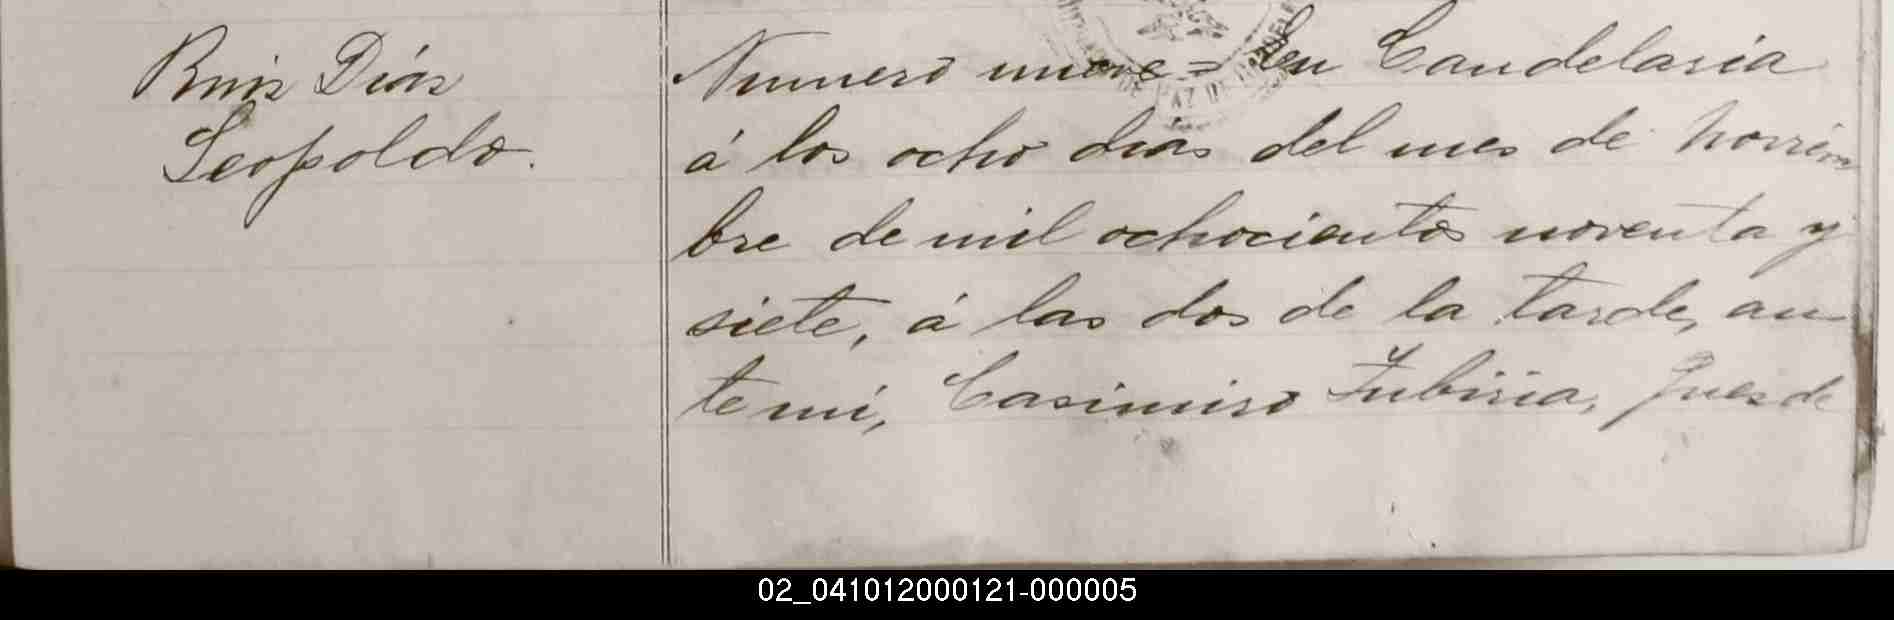 Ruis Días
Leopoldo.
Numero nueve = En Candelaria
á los ocho días del mes de noviem
bre de mil ochocientos noventa y
siete, á las dos de la tarde, an
te mi, Casimiro Zubiria, Jues de
02_041012000121-000005